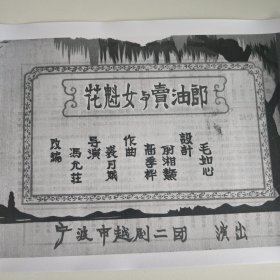 花魁女与賣油郎
改編 馮允莊
导演 裘月
作曲 高季
設計
毛如心
宁波市越剧二团 演出